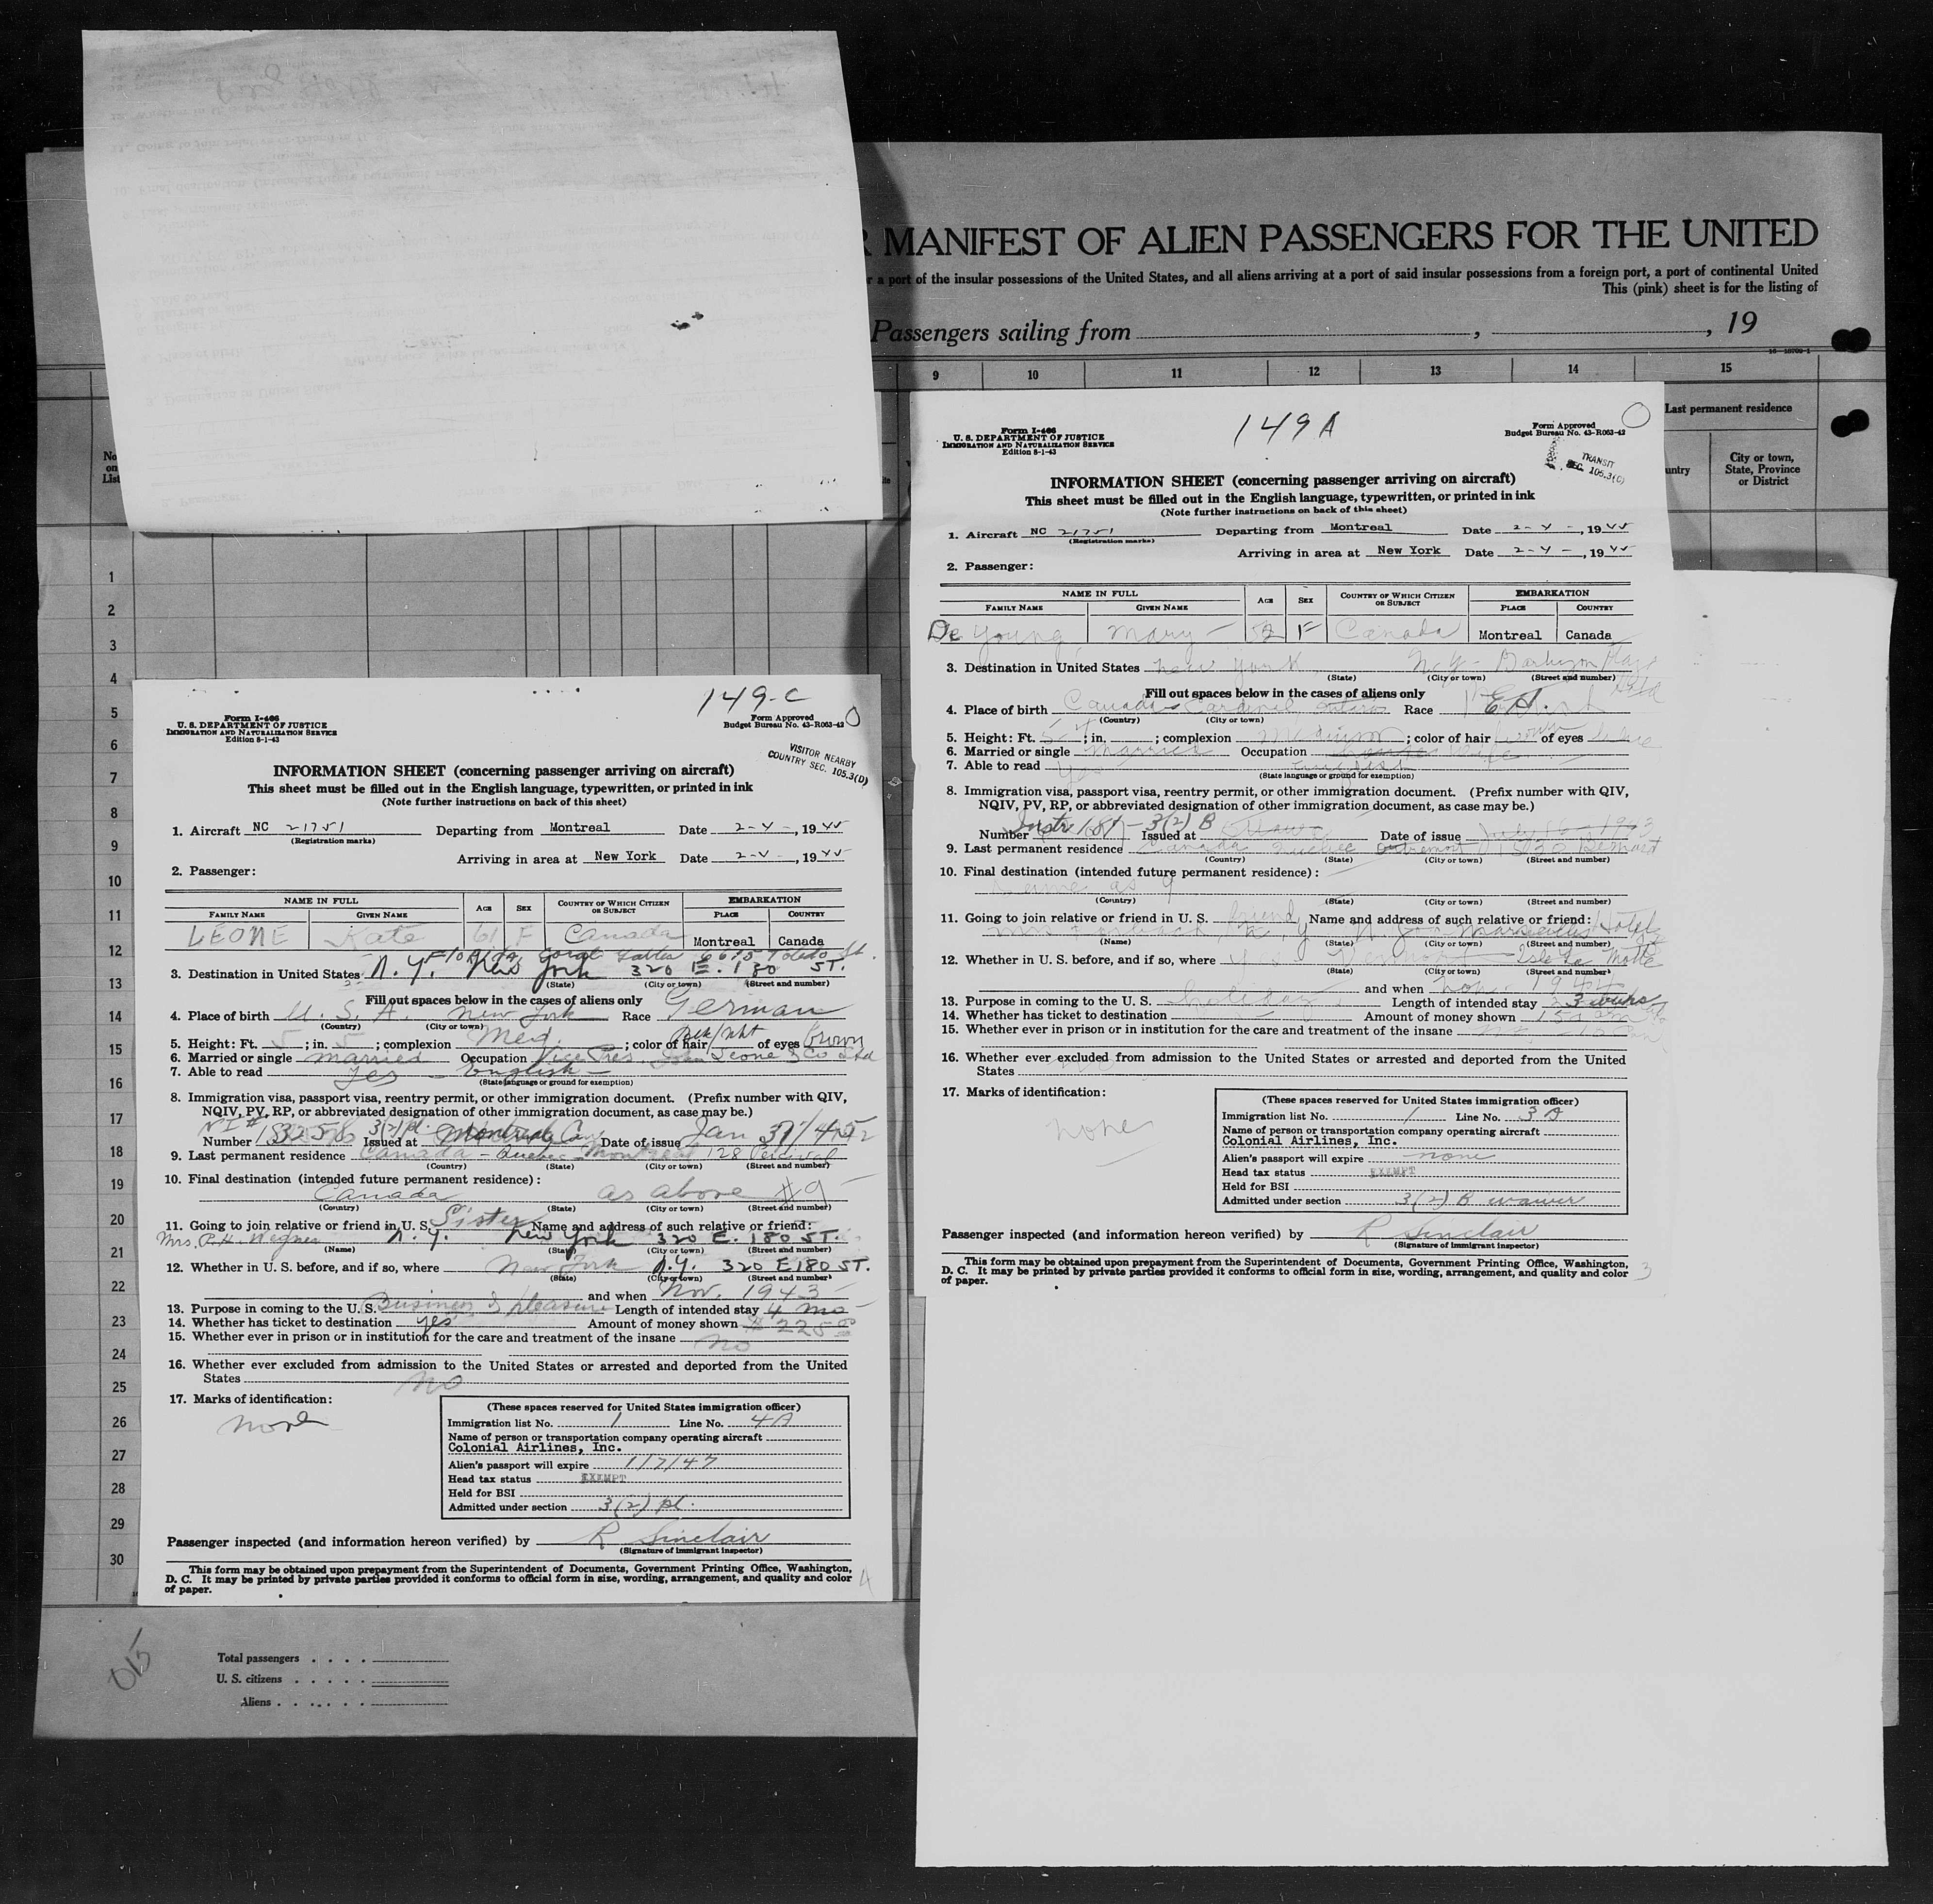 R MANIFEST OF ALIEN PASSENGERS FOR THE UNITED
r a port of the insular possessions of the United States, and all aliens arriving at a port of said insular possessions from a foreign port, a port of continental United
This (pink) sheet is for the listing of
Passengers sailing from , , 19
9 10 11 12 13 14 15
Last permanent residence
No
on
List
untry
City or town,
State, Province
or District
1
2
3
4
5
6
7
8
9
10
11
12
13
14
15
16
17
18
19
20
21
22
23
24
25
26
27
28
29
30
149-C
Form I-466
U. S. DEPARTMENT OF JUSTICE
IMMIGRATION AND NATURALIZATION SERVICE
Edition 8-1-43
Form Approved
Budget Bureau No. 43-R063-42
VISITOR NEARBY
COUNTRY SEC. 105.3(D)
INFORMATION SHEET (concerning passenger arriving on aircraft)
This sheet must be filled out in the English language, typewritten, or printed in ink
(Note further instructions on back of this sheet)
1. Aircraft NC 21751 Departing from Montreal Date 2-4-, 1945
(Registration marks)
Arriving in area at New York Date 2-4-, 1945
2. Passenger:
NAME IN FULL AGE SEX COUNTRY OF WHICH CITIZEN OR SUBJECT EMBARKATION
FAMILY NAME GIVEN NAME PLACE COUNTRY
LEONE Kate 61 F Canada Montreal Canada
Florida, Coral Gables 6615 Toledo St.
3. Destination in United States N.Y. New York 320 E. 180 ST.
(State) (City or town) (Street and number)
Fill out spaces below in the cases of aliens only
4. Place of birth U. S. A. New York Race German
(Country) (City or town)
5. Height: Ft. 5; in. 5; complexion Med.; color of hair blk/wht of eyes brown
6. Married or single married Occupation Vice Pres. John Leone & Co Ltd
7. Able to read yes - English -
(State language or ground for exemption)
8. Immigration visa, passport visa, reentry permit, or other immigration document. (Prefix number with QIV,
NQIV, PV, RP, or abbreviated designation of other immigration document, as case may be.)
Number Issued at Montreal Can Date of issue Jan
9. Last permanent residence Canada - Quebec - Montreal 128 Percival
(Country) (State) (City or town) (Street and number)
10. Final destination (intended future permanent residence):
Canada as above #9
(Country) (State) (City or town) (Street and number)
11. Going to join relative or friend in U. S. Sister Name and address of such relative or friend:
Mrs. P.H. Wagner N.Y. New York 320 E. 180 ST.
(Name) (State) (City or town) (Street and number)
12. Whether in U. S. before, and if so, where New York N.Y. 320 E 180 ST.
(State) (City or town) (Street and number)
and when Nov. 1943
13. Purpose in coming to the U. S. Business & pleasure Length of intended stay 4 mo
14. Whether has ticket to destination yes Amount of money shown $225
15. Whether ever in prison or in institution for the care and treatment of the insane no
16. Whether ever excluded from admission to the United States or arrested and deported from the United
States no
17. Marks of identification:
none
(These spaces reserved for United States immigration officer)
Immigration list No. 1 Line No. 4A
Name of person or transportation company operating aircraft
Colonial Airlines, Inc.
Alien's passport will expire 1/7/47
Head tax status EXEMPT
Held for BSI
Admitted under section 3(2) pl.
Passenger inspected (and information hereon verified) by R Sinclair
(Signature of immigrant inspector)
This form may be obtained upon prepayment from the Superintendent of Documents, Government Printing Office, Washington,
D. C. It may be printed by private parties provided it conforms to official form in size, wording, arrangement, and quality and color
of paper.
4
Total passengers
U. S. citizens
Aliens
015
149 A
Form I-466
U. S. DEPARTMENT OF JUSTICE
IMMIGRATION AND NATURALIZATION SERVICE
Edition 8-1-43
Form Approved
Budget Bureau No. 43-R063-42
TRANSIT
SEC. 105.3(C)
INFORMATION SHEET (concerning passenger arriving on aircraft)
This sheet must be filled out in the English language, typewritten, or printed in ink
(Note further instructions on back of this sheet)
1. Aircraft NC 21751 Departing from Montreal Date 2-4-, 1945
(Registration marks)
Arriving in area at New York Date 2-4-, 1945
2. Passenger:
NAME IN FULL AGE SEX COUNTRY OF WHICH CITIZEN OR SUBJECT EMBARKATION
FAMILY NAME GIVEN NAME PLACE COUNTRY
De Young Mary F Canada Montreal Canada
3. Destination in United States New York N.Y. Barbizon Plaza
(State) (City or town) (Street and number)
Fill out spaces below in the cases of aliens only
4. Place of birth Canada Cardinal Ontario Race
(Country) (City or town)
5. Height: Ft. 5; in.; complexion medium; color of hair brown of eyes
6. Married or single married Occupation wife
7. Able to read yes English
(State language or ground for exemption)
8. Immigration visa, passport visa, reentry permit, or other immigration document. (Prefix number with QIV,
NQIV, PV, RP, or abbreviated designation of other immigration document, as case may be.)
Number Instr 187 - 3(2) B Issued at Ottawa Date of issue July 16 - 1943
9. Last permanent residence Canada Quebec Outremont Bernard
(Country) (State) (City or town) (Street and number)
10. Final destination (intended future permanent residence):
same as 9
(Country) (State) (City or town) (Street and number)
11. Going to join relative or friend in U. S. friend Name and address of such relative or friend:
Hotel
(Name) (State) (City or town) (Street and number)
12. Whether in U. S. before, and if so, where yes Vermont Isle La Motte
(State) (City or town) (Street and number)
and when Nov. 1944
13. Purpose in coming to the U. S. holiday Length of intended stay 3 weeks
14. Whether has ticket to destination Amount of money shown
15. Whether ever in prison or in institution for the care and treatment of the insane
16. Whether ever excluded from admission to the United States or arrested and deported from the United
States
17. Marks of identification:
none
(These spaces reserved for United States immigration officer)
Immigration list No. 1 Line No. 3A
Name of person or transportation company operating aircraft
Colonial Airlines, Inc.
Alien's passport will expire none
Head tax status EXEMPT
Held for BSI
Admitted under section 3(2) B waiver
Passenger inspected (and information hereon verified) by R Sinclair
(Signature of immigrant inspector)
This form may be obtained upon prepayment from the Superintendent of Documents, Government Printing Office, Washington,
D. C. It may be printed by private parties provided it conforms to official form in size, wording, arrangement, and quality and color
of paper.
3